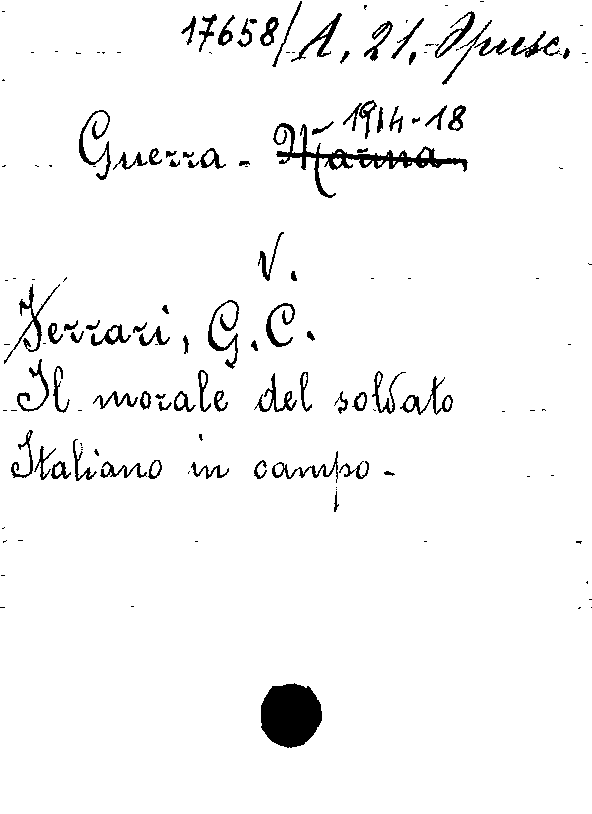 17658/A. 21. Opusc.
1914-18
Guerra - Marina
V.
Ferrari, G. C.
Il morale del soldato
Italiano in campo -